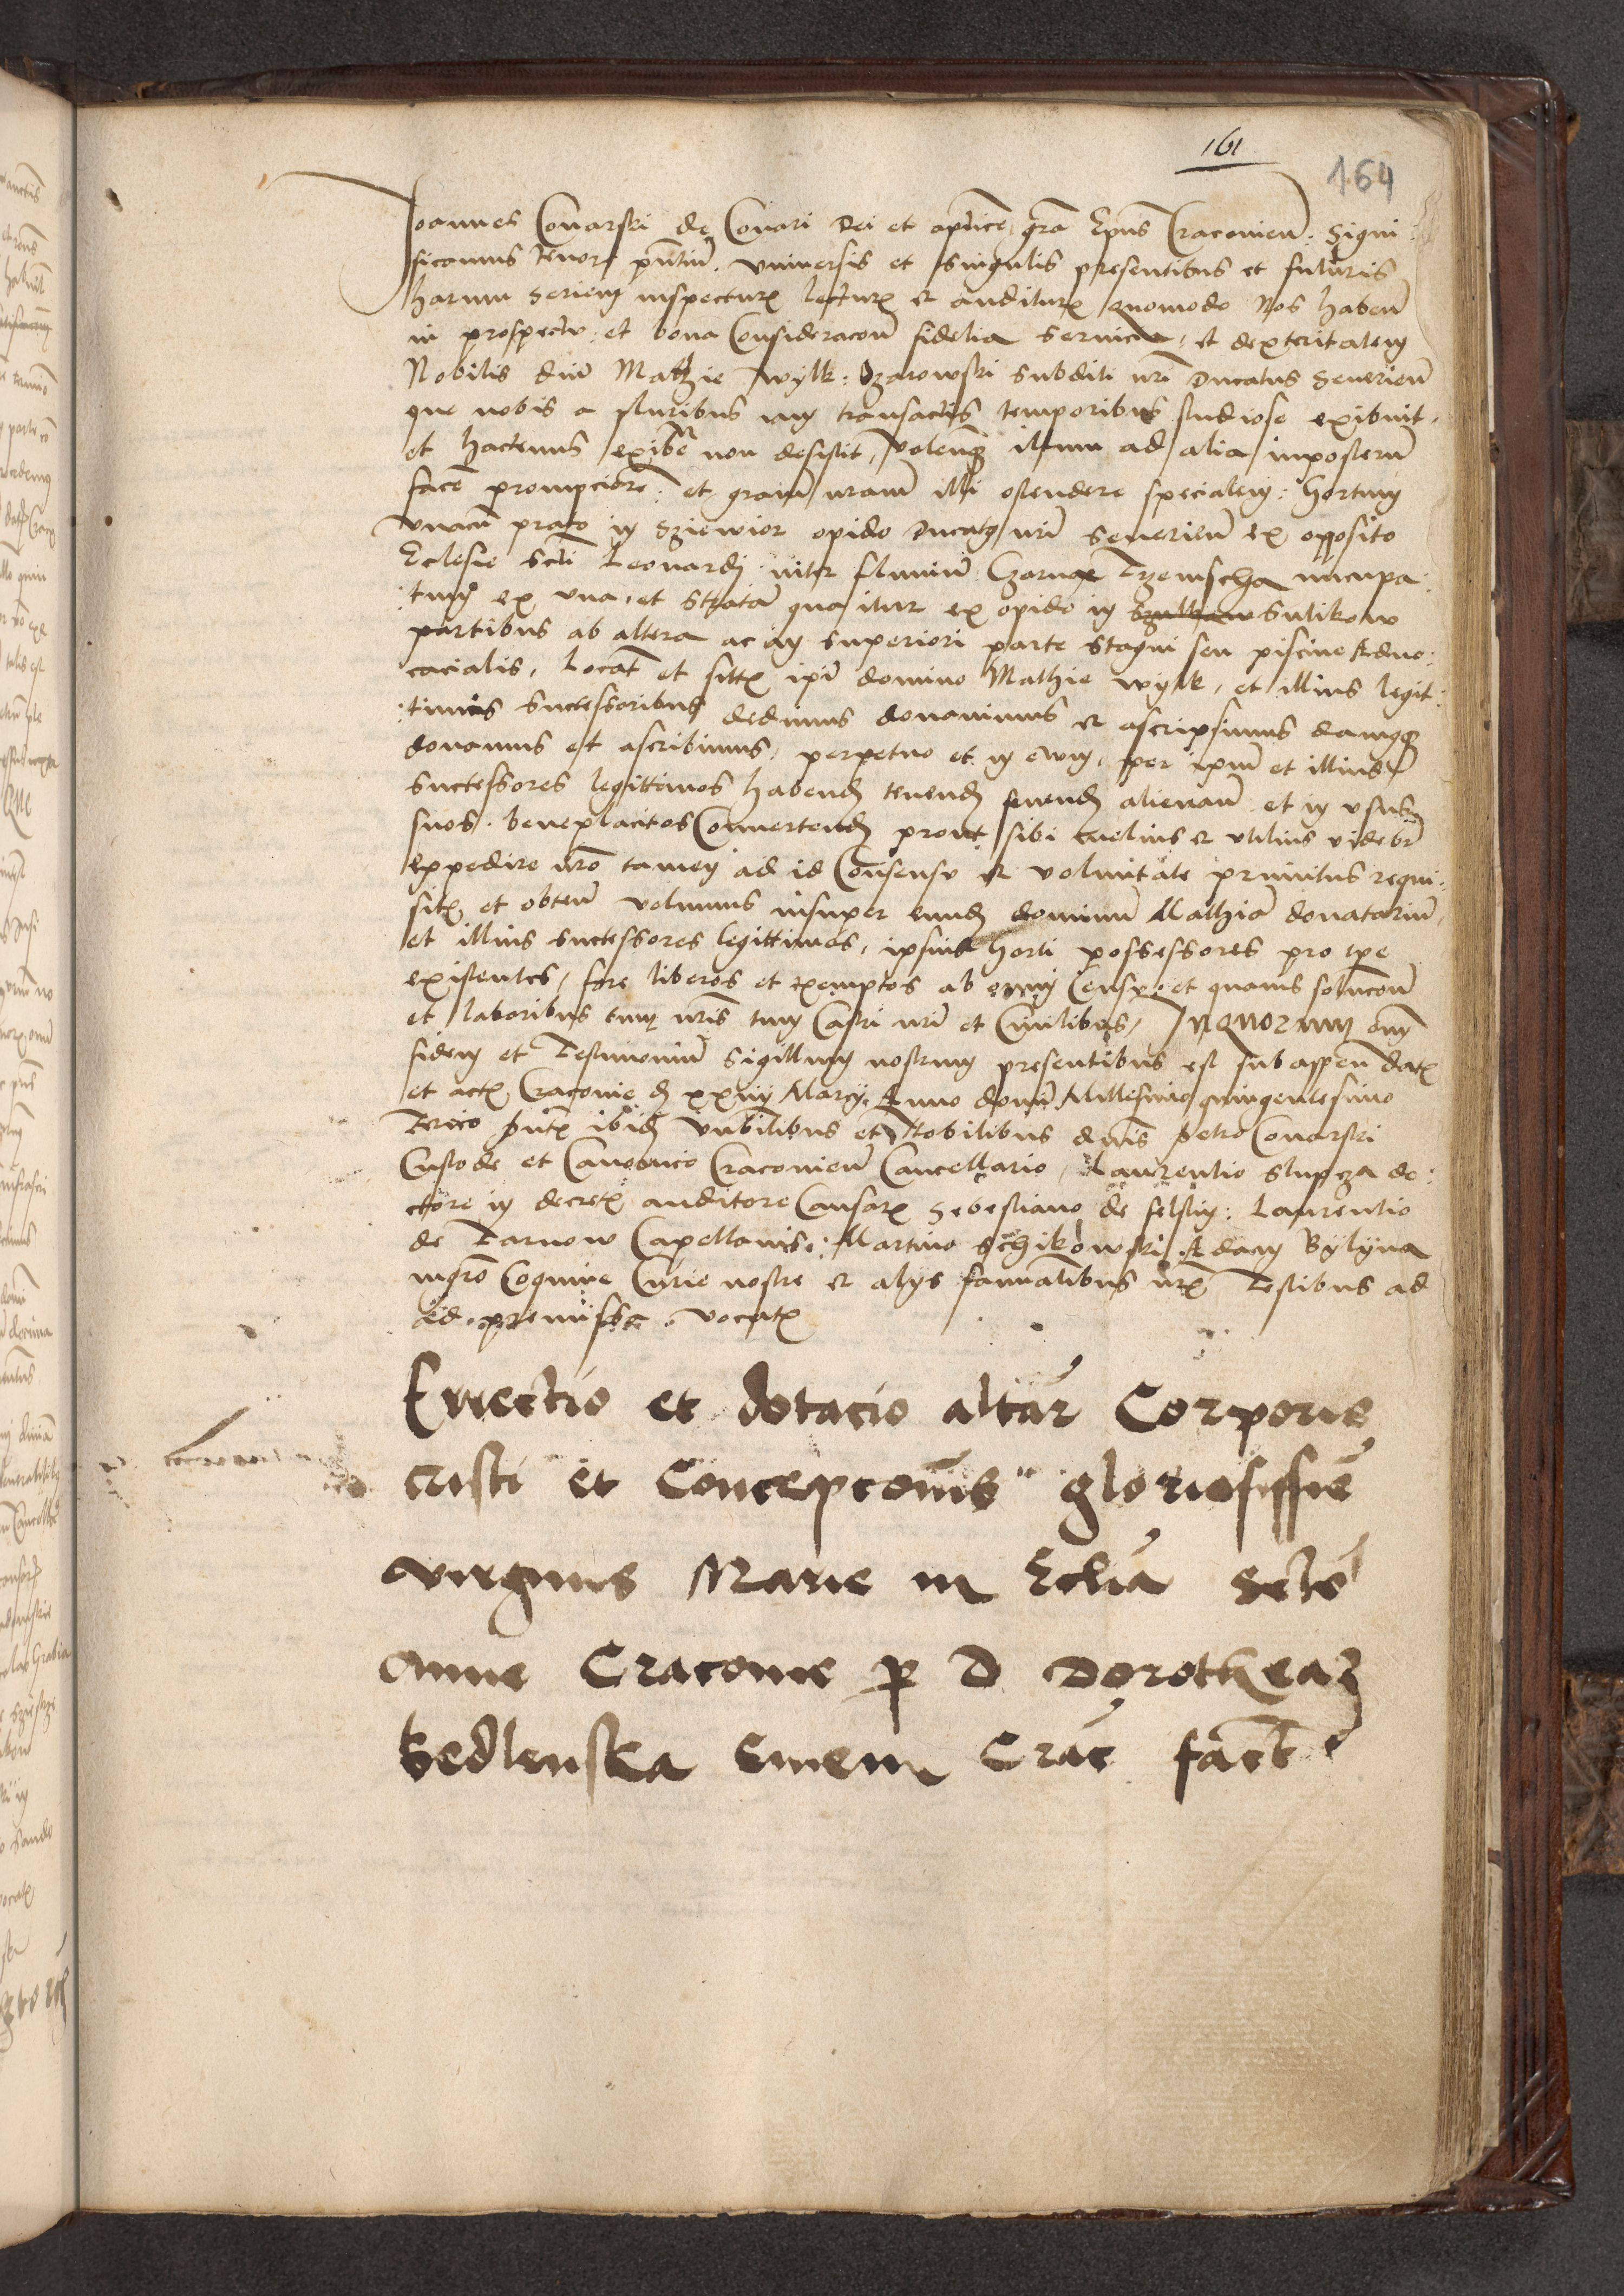 161
164
Joannes Conarski de Conari Dei et aplice gra Epus Cracovien. Signi
ficamus tenore pntiu. Universis et singulis presentibus et futuris
harum seriem inspectur lectur et auditur quomodo Nos haben
in prospectu et bona Consideracon fidelia servicia, et dexteritatem
Nobilis dni Mathie Wylk subditi nri Ducatus Severien
que nobis a pluribus iam transactis temporibus studiose exibuit,
et hactenus exibe non desistit, volensq ilum ad alia imposteru
face prompciore: et gram nram illi ostendere specialem: hortum
unacu prato in Sziewior opido Ducatq nri Severien ex opposito
Eclesie scti Leonardi inter fluviu Czarna nucupa:
:tum ex una, et strata qua itur ex opido in Sulikow
partibus ab altera ac in superiori parte stagni seu piscine Advo:
cacialis, Locat et sitt ipi domino Mathie Wylk, et illius legit:
:timis successoribus dedimus donavimus et ascripsimus damusq
donamus et ascribimus, perpetuo et in evum, per ipm et illius
successores legittimos habend tenend alienan et in usus
suos beneplacitos Convertend prout sibi melius et utilius videbr
expedire nro tamen ad id Consensu et voluntate primitus requi:
sit et obten volumus insuper eund dominu Mathia donatariu,
et illius successores legittimos, ipsius horti possessores pro tpe
existentes, fore liberos et exemptos ab omni Censu et quavis solucon
et laboribus tum nris tum Castri nri et Civilibus, In quorum om
fidem et Testimoniu Sigillum nostrum presentibus est subappen dat
et act Cracovie d xxiiij Marcij Anno domi Millesimo quingentesimo
Tercio pnt ibid Vnbilibus et Nobilibus dnis Petro Conarski
Custode et Canonico Cracovien Cancellario, Laurentio Slupcza do:
ctore in decret auditore Causar Sebestiano de Felstin: Laurentio
de Tarnow Capellanis: Martino Schikowski Adam Bylyna
mgro Coquine Curie nostre et alys famliaribus nr Testibus ad
ad premissa vocat
Errectio et dotacio altar Corporis
cristi et Concepconis gloriosissie
virginis Marie in Eclia scte
Anne Cracovie p D Dorotheam
kedlenska Civem Crac fact